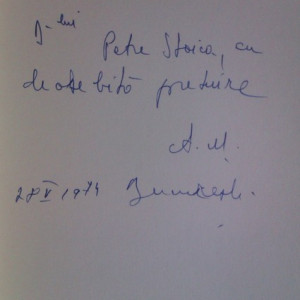 D-lui
Petre Stoica, cu
deosebită prețuire
A. M.
28 V 1974 București.